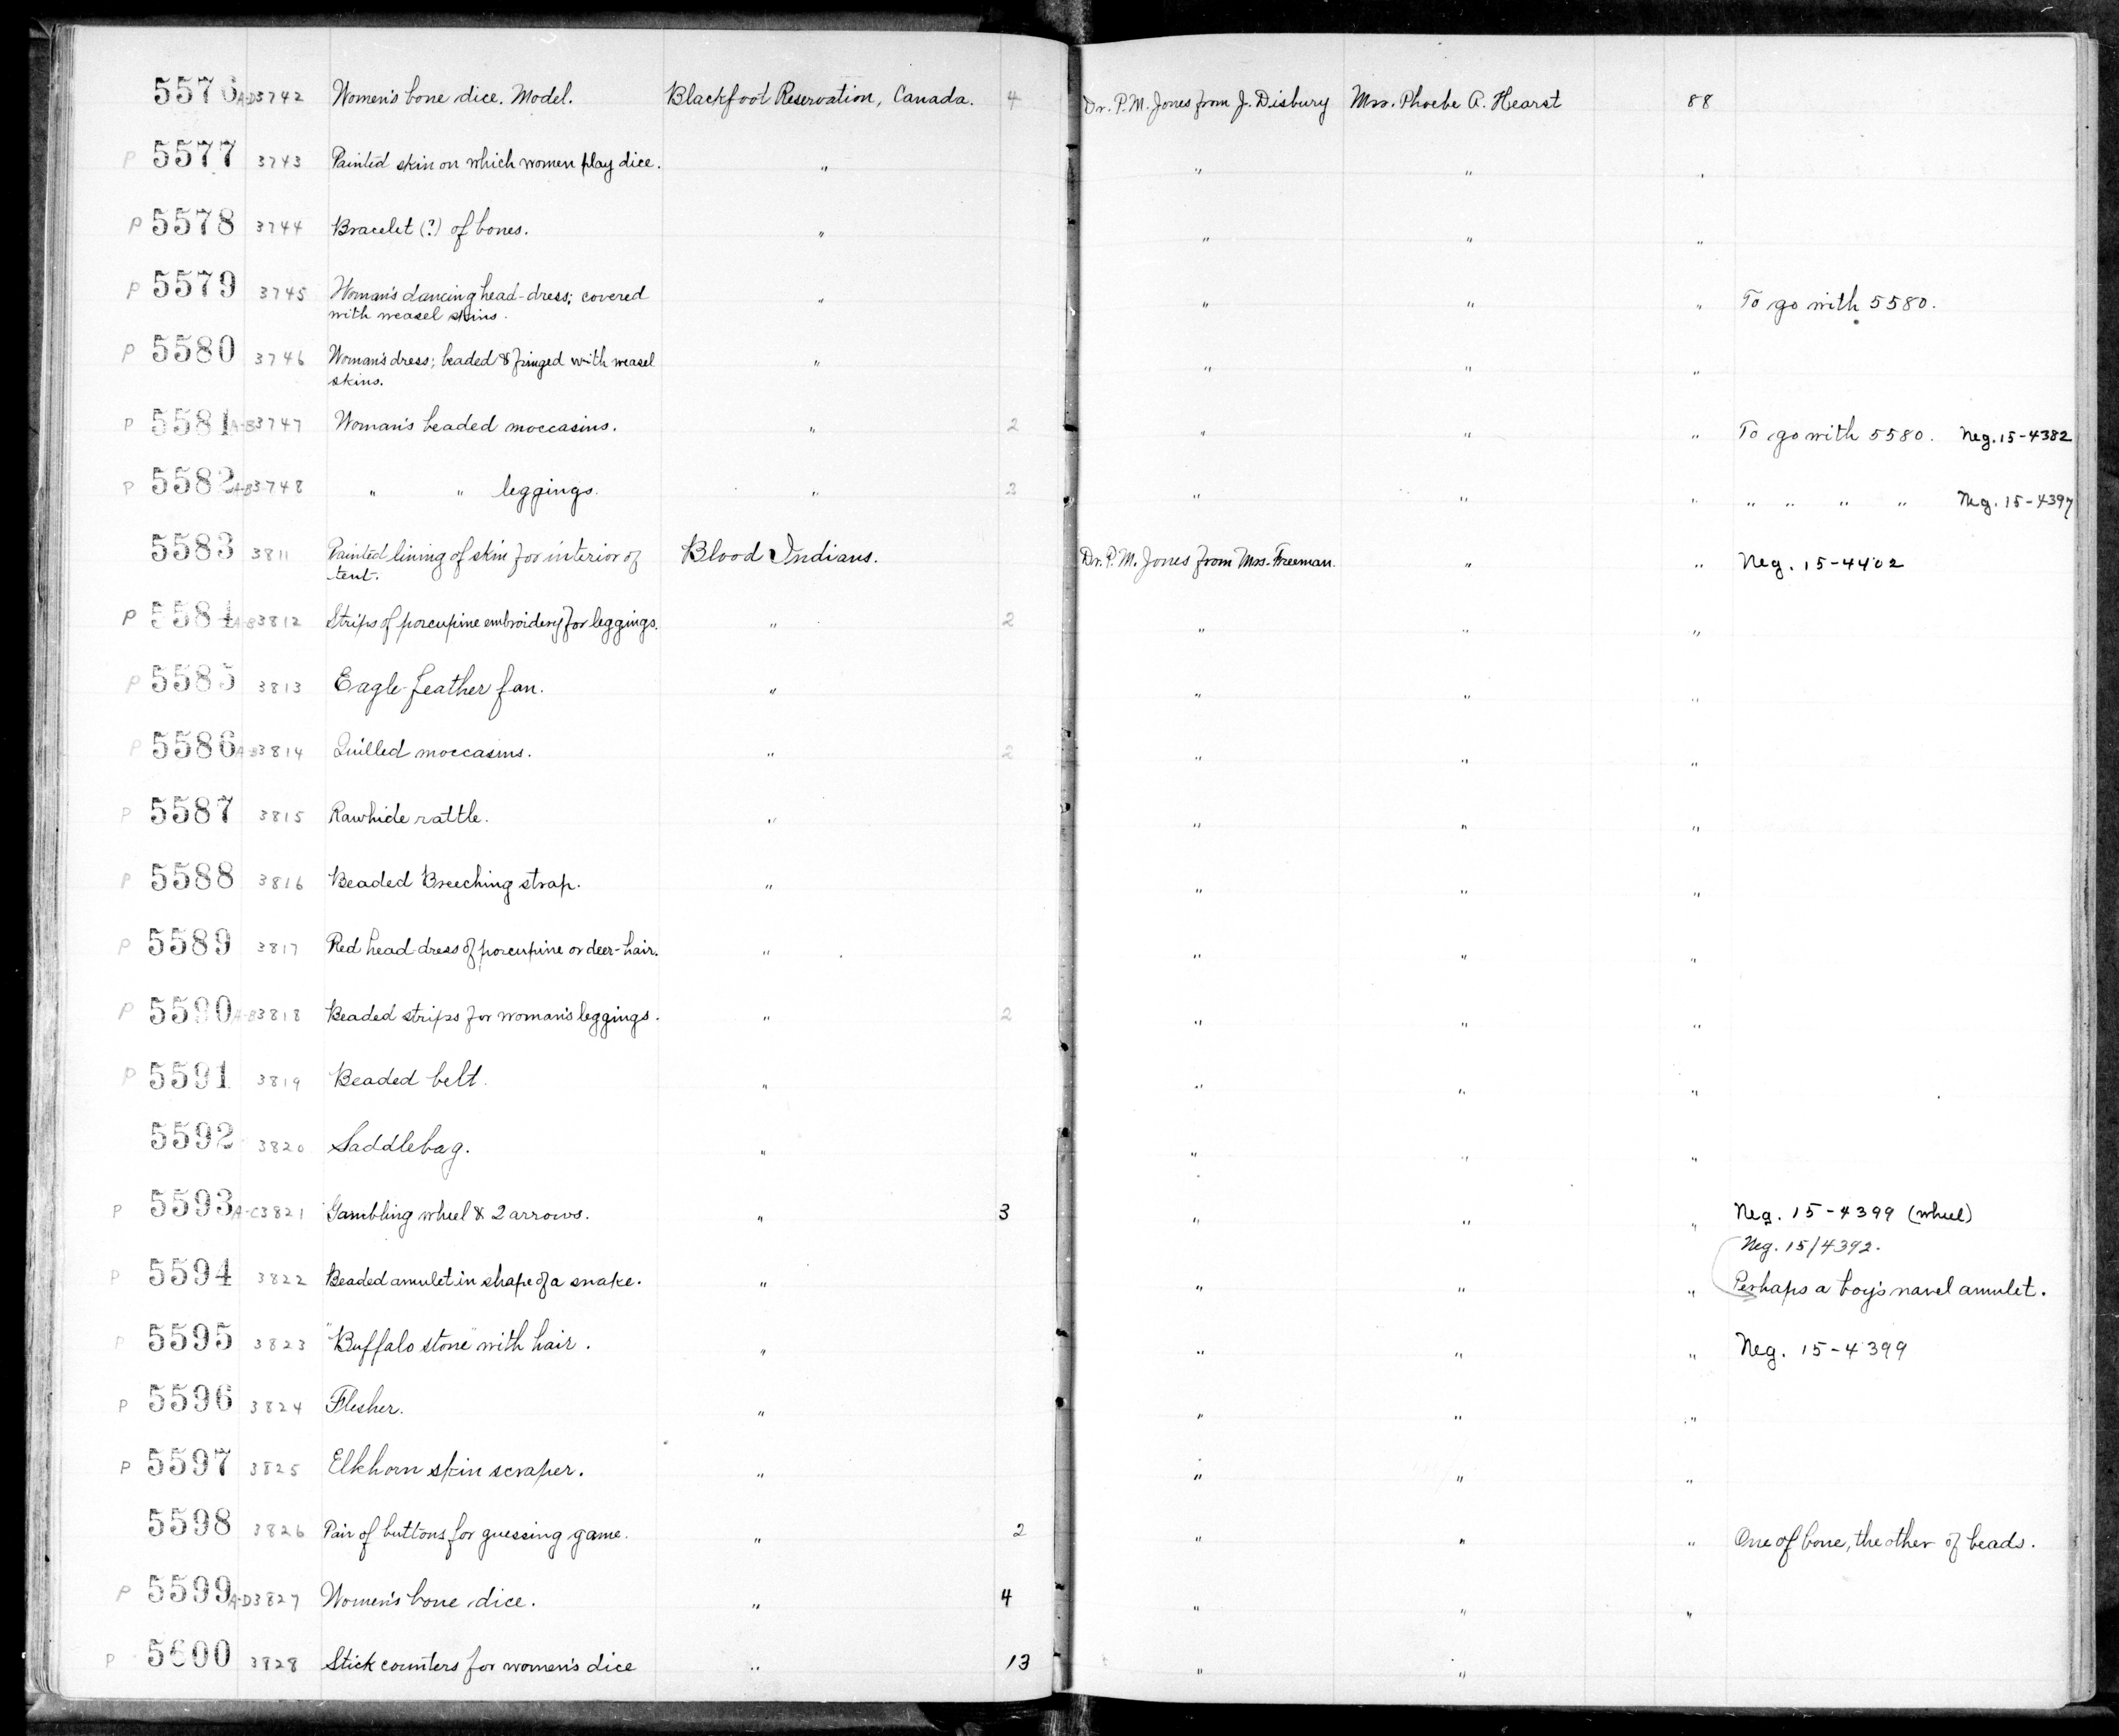 5576 A-D 3742 Women's bone dice. Model. Blackfoot Reservation, Canada. 4 Dr. P.M. Jones from J. Disbury Mrs. Phoebe A. Hearst 88
P 5577 3743 Painted skin on which women play dice. " " " "
P 5578 3744 Bracelet (?) of bones. " " " "
P 5579 3745 Woman's dancing head-dress; covered " " " " To go with 5580.
with weasel skins.
P 5580 3746 Woman's dress; beaded & fringed with weasel " " " "
skins.
P 5581 A-B 3747 Woman's beaded moccasins. " 2 " " " To go with 5580. Neg. 15-4382
P 5582 A-B 3748 " " leggings. " 2 " " " " " " " Neg. 15-4397
5583 3811 Painted lining of skin for interior of Blood Indians. Dr. P.M. Jones from Mrs. Freeman. " " Neg. 15-4402
tent.
P 5584 A-B 3812 Strips of porcupine embroidery for leggings. " 2 " " "
P 5585 3813 Eagle-feather fan. " " " "
P 5586 A-B 3814 Quilled moccasins. " 2 " " "
P 5587 3815 Rawhide rattle. " " " "
P 5588 3816 Beaded Breeching strap. " " " "
P 5589 3817 Red head-dress of porcupine or deer-hair. " " " "
P 5590 A-B 3818 Beaded strips for woman's leggings. " 2 " " "
P 5591 3819 Beaded belt. " " " "
5592 3820 Saddlebag. " " " "
P 5593 A-C 3821 Gambling wheel & 2 arrows. " 3 " " " Neg. 15-4399 (wheel)
Neg. 15/4392.
P 5594 3822 Beaded amulet in shape of a snake. " " " " Perhaps a boy's navel amulet.
P 5595 3823 "Buffalo stone" with hair. " " " " Neg. 15-4399
P 5596 3824 Flesher. " " " "
P 5597 3825 Elkhorn skin scraper. " " " "
5598 3826 Pair of buttons for guessing game. " 2 " " " One of bone, the other of beads.
P 5599 A-D 3827 Women's bone dice. " 4 " " "
P 5600 3828 Stick counters for women's dice " 13 " "